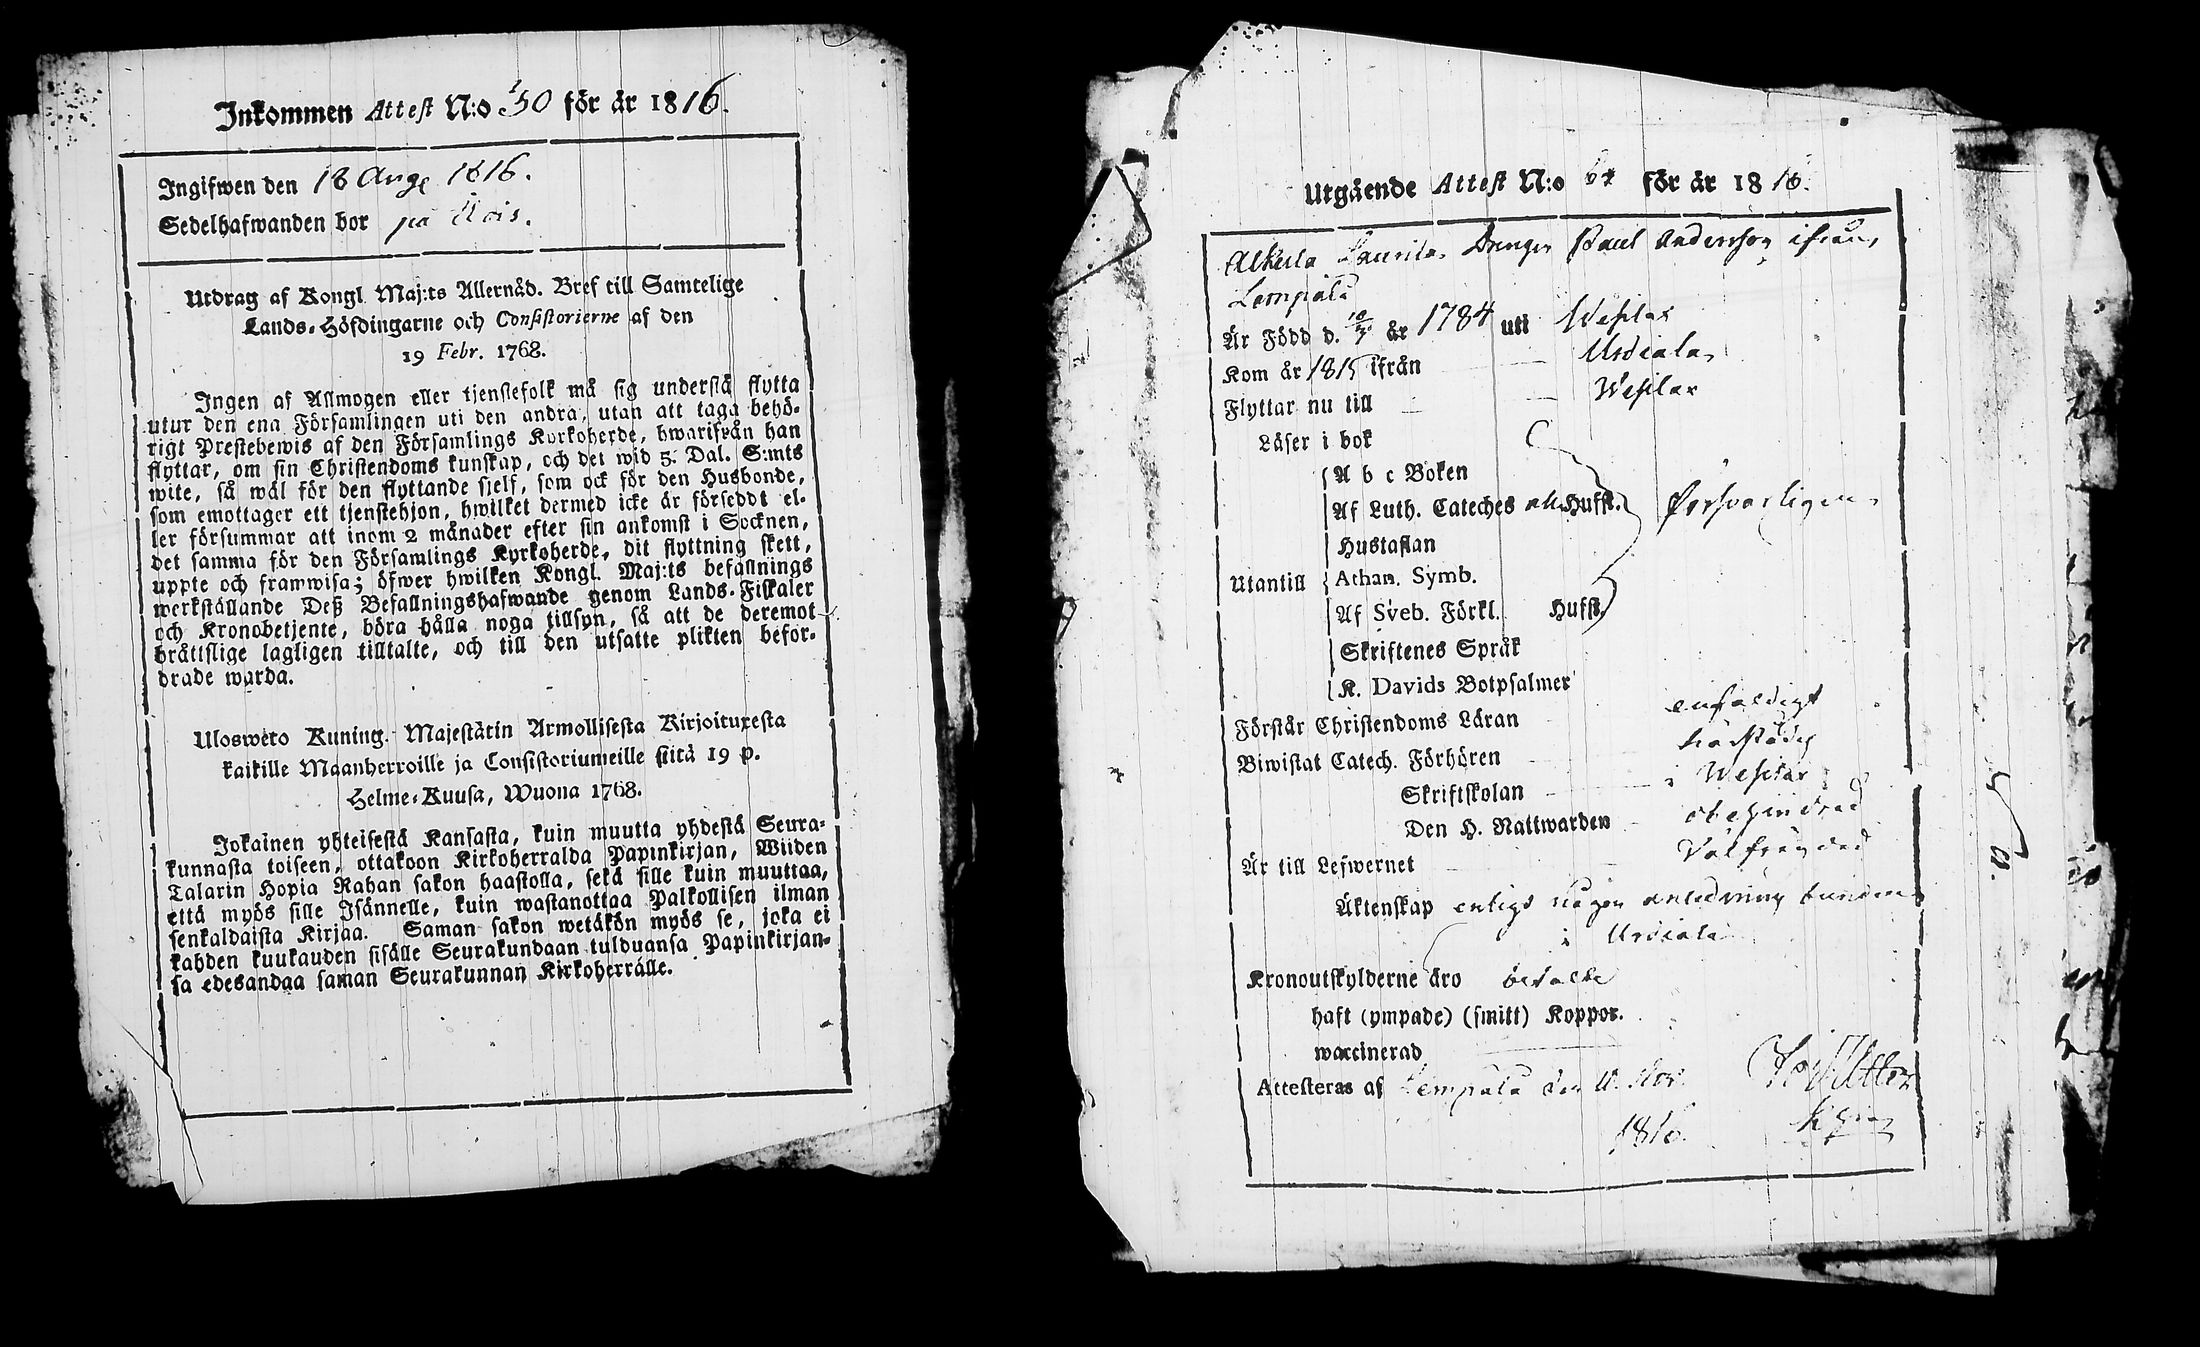 Inkommen Attest N:o 50 för år 1816.
Ingifwen den 18 Aug 1816.
Sedelhafwanden bor på
Utdrag af Kongl. Maj:ts Allernåd. Bref till Samtelige
Lands-Höfdingarne och Consistorierne af den
19 Febr. 1768.
Ingen af Allmogen eller tjenstefolk må sig understå flytta
utur den ena Församlingen uti den andra, utan att taga behö-
rigt Prestebewis af den Församlings Kyrkoherde, hwarifrån han
flyttar, om sin Christendoms kunskap, och det wid 5. Dal. S:mts
wite, så wäl för den flyttande sjelf, som ock för den Husbonde,
som emottager ett tjenstehjon, hwilket dermed icke är förseddt el-
ler försummar att inom 2 månader efter sin ankomst i Socknen,
det samma för den Församlings Kyrkoherde, dit flyttning skett,
uppte och framwisa; öfwer hwilken Kongl. Maj:ts befallnings
werkställande Deß Befallningshafwande genom Lands-Fiskaler
och Kronobetjente, böra hålla noga tillsyn, så att de deremot
bråttslige lagligen tilltalte, och till den utsatte plikten beför-
drade warda.
Uloswèto Kuning. Majestätin Armollisesta Kirjoituxesta
kaikille Maanherroille ja Consistoriumeille siitä 19 p.
Helme-Kuusa, Wuona 1768.
Jokainen yhteisestä Kansasta, kuin muutta yhdestä Seura-
kunnasta toiseen, ottakoon Kirkoherralda Papinkirjan, Wiiden
Talarin Hopia Rahan sakon haastolla, sekä sille kuin muuttaa,
että myös sille Isännelle, kuin wastanottaa Palkollisen ilman
senkaldaista Kirjaa. Saman sakon wetäkön myös se, joka ei
kahden kuukauden sisälle Seurakundaan tulduansa Papinkirjan-
sa edesandaa saman Seurakunnan Kirkoherralle.
Utgående Attest N:o för år 1816.
Alkula Laurila Drengen Paul Andersson ifrån
Lempälä
Är Född d. 10/7 år 1784 uti Wesilax
Kom år 1815 ifrån Urdiala
Flyttar nu till Wesilax
Läser i bok
A b c Boken
Af Luth. Cateches Hufst. försvarligen
Hustaflan
Utantill Athan. Symb.
Af Sveb. Förkl. Hufst.
Skriftenes Språk
K. Davids Botpsalmer
Förstår Christendoms Läran enfaldigt
Biwistat Catech. Förhören härstädes
Skriftskolan i Wesilax
Den H. Nattwarden obehindrad
Är till Lefwernet välfrägdad
Äktenskap enligt någon anledning bunden
i Urdiala
Kronoutskylderne äro betalte
haft (ympade) (smitt) Koppor.
waccinerad
Attesteras af Lempälä den 11. Nov.
1816.